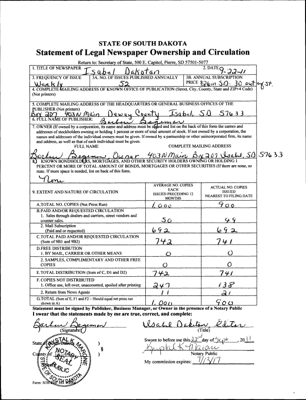 STATE OF SOUTH DAKOTA
Statement of Legal Newspaper Ownership and Circulation
Return to: Secretary of State, 500 E. Capitol, Pierre, SD 57501-5077
1. TITLE OF NEWSPAPER
2. DATE
Isabel Dakotan
9-22-11
3. FREQUENCY OF ISSUE
3A. NO. OF ISSUES PUBLISHED ANNUALLY
3B. ANNUAL SUBSCRIPTION
PRICE
52
4. COMPLETE MAILING ADDRESS OF KNOWN OFFICE OF PUBLICATION (Street, City, County, State and ZIP+4 Code)
(Not printers)
5. COMPLETE MAILING ADDRESS OF THE HEADQUARTERS OR GENERAL BUSINESS OFFICES OF THE
PUBLISHER (Not printers)
Box 207 403 N Main Dewey County Isabel SD 57633
6. FULL NAME OF PUBLISHER:
7. OWNER (If owned by a corporation, its name and address must be stated and list on the back of this form the names and
addresses of stockholders owning or holding 1 percent or more of total amount of stock. If not owned by a corporation, the
names and addresses of the individual owners must be given. If owned by a partnership or other unincorporated firm, its name
and address, as well as that of each individual must be given.
FULL NAME
COMPLETE MAILING ADDRESS
Owner 403 N Main Box 207 Isabel, SD 57633
8. KNOWN BONDHOLDERS, MORTGAGES, AND OTHER SECURITY HOLDERS OWNING OR HOLDING 1
PERCENT OR MORE OF TOTAL AMOUNT OF BONDS, MORTGAGES OR OTHER SECURITIES (If there are none, so
state. If more space is needed, list on back of this form.
None
9. EXTENT AND NATURE OF CIRCULATION
AVERAGE NO. COPIES
EACH
ISSUED PRECEDING 12
MONTHS
ACTUAL NO. COPIES
ISSUED
NEAREST TO FILING DATE
A. TOTAL NO. COPIES (Net Press Run)
1,000
900
B. PAID AND/OR REQUESTED CIRCULATION
1. Sales through dealers and carriers, street vendors and
counter sales.
50
49
2. Mail Subscription
(Paid and or requested)
692
692
C. TOTAL PAID AND/OR REQUESTED CIRCULATION
(Sum of 9B1 and 9B2)
742
741
D. FREE DISTRIBUTION
1. BY MAIL, CARRIER OR OTHER MEANS
0
0
2. SAMPLES, COMPLIMENTARY AND OTHER FREE
COPIES
0
0
E. TOTAL DISTRIBUTION (Sum of C, D1 and D2)
742
741
F. COPIES NOT DISTRIBUTED
1. Office use, left over, unaccounted, spoiled after printing
247
138
2. Return from News Agents
11
21
G. TOTAL (Sum of E, F1 and F2 - Should equal net press run
shown in A)
1,000
900
Statement must be signed by Publisher, Business Manager, or Owner in the presence of a Notary Public
I swear that the statements made by me are true, correct, and complete:
(Signature)
(Title)
State
County of
Sworn to before me this 22 day of Sept, 2011
Notary Public
My commission expires: 7/13/17
NOTARY
PUBLIC
SEAL
SOUTH DAKOTA